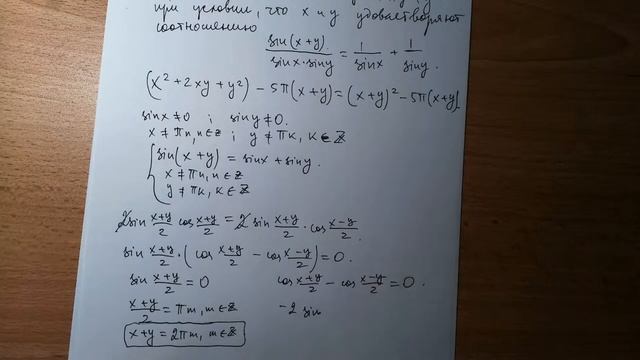 при условии, что x и y удовлетворяют
соотношению
sin(x+y) / sinx·siny = 1/sinx + 1/siny.
(x²+2xy+y²) − 5π(x+y) = (x+y)² − 5π(x+y)
sinx ≠ 0 ; siny ≠ 0.
x ≠ πn, n∈Z ; y ≠ πk, k∈Z
{ sin(x+y) = sinx + siny.
x ≠ πn, n∈Z
y ≠ πk, k∈Z
2sin (x+y)/2 cos (x+y)/2 = 2 sin (x+y)/2 · cos (x−y)/2.
sin (x+y)/2 · (cos (x+y)/2 − cos (x−y)/2) = 0.
sin (x+y)/2 = 0 cos (x+y)/2 − cos (x−y)/2 = 0.
(x+y)/2 = πm, m∈Z −2 sin
x+y = 2πm, m∈Z